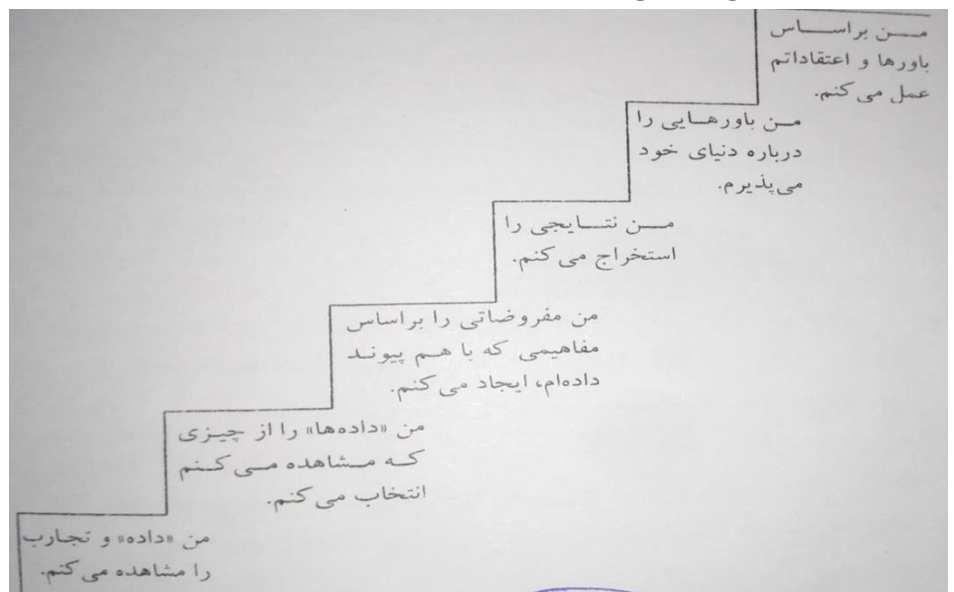 من براساس
باورها و اعتقاداتم
عمل می‌کنم.
من باورهایی را
درباره دنیای خود
می‌پذیرم.
من نتایجی را
استخراج می‌کنم.
من مفروضاتی را براساس
مفاهیمی که با هم پیوند
داده‌ام، ایجاد می‌کنم.
من «داده‌ها» را از چیزی
که مشاهده می‌کنم
انتخاب می‌کنم.
من «داده» و تجارب
را مشاهده می‌کنم.